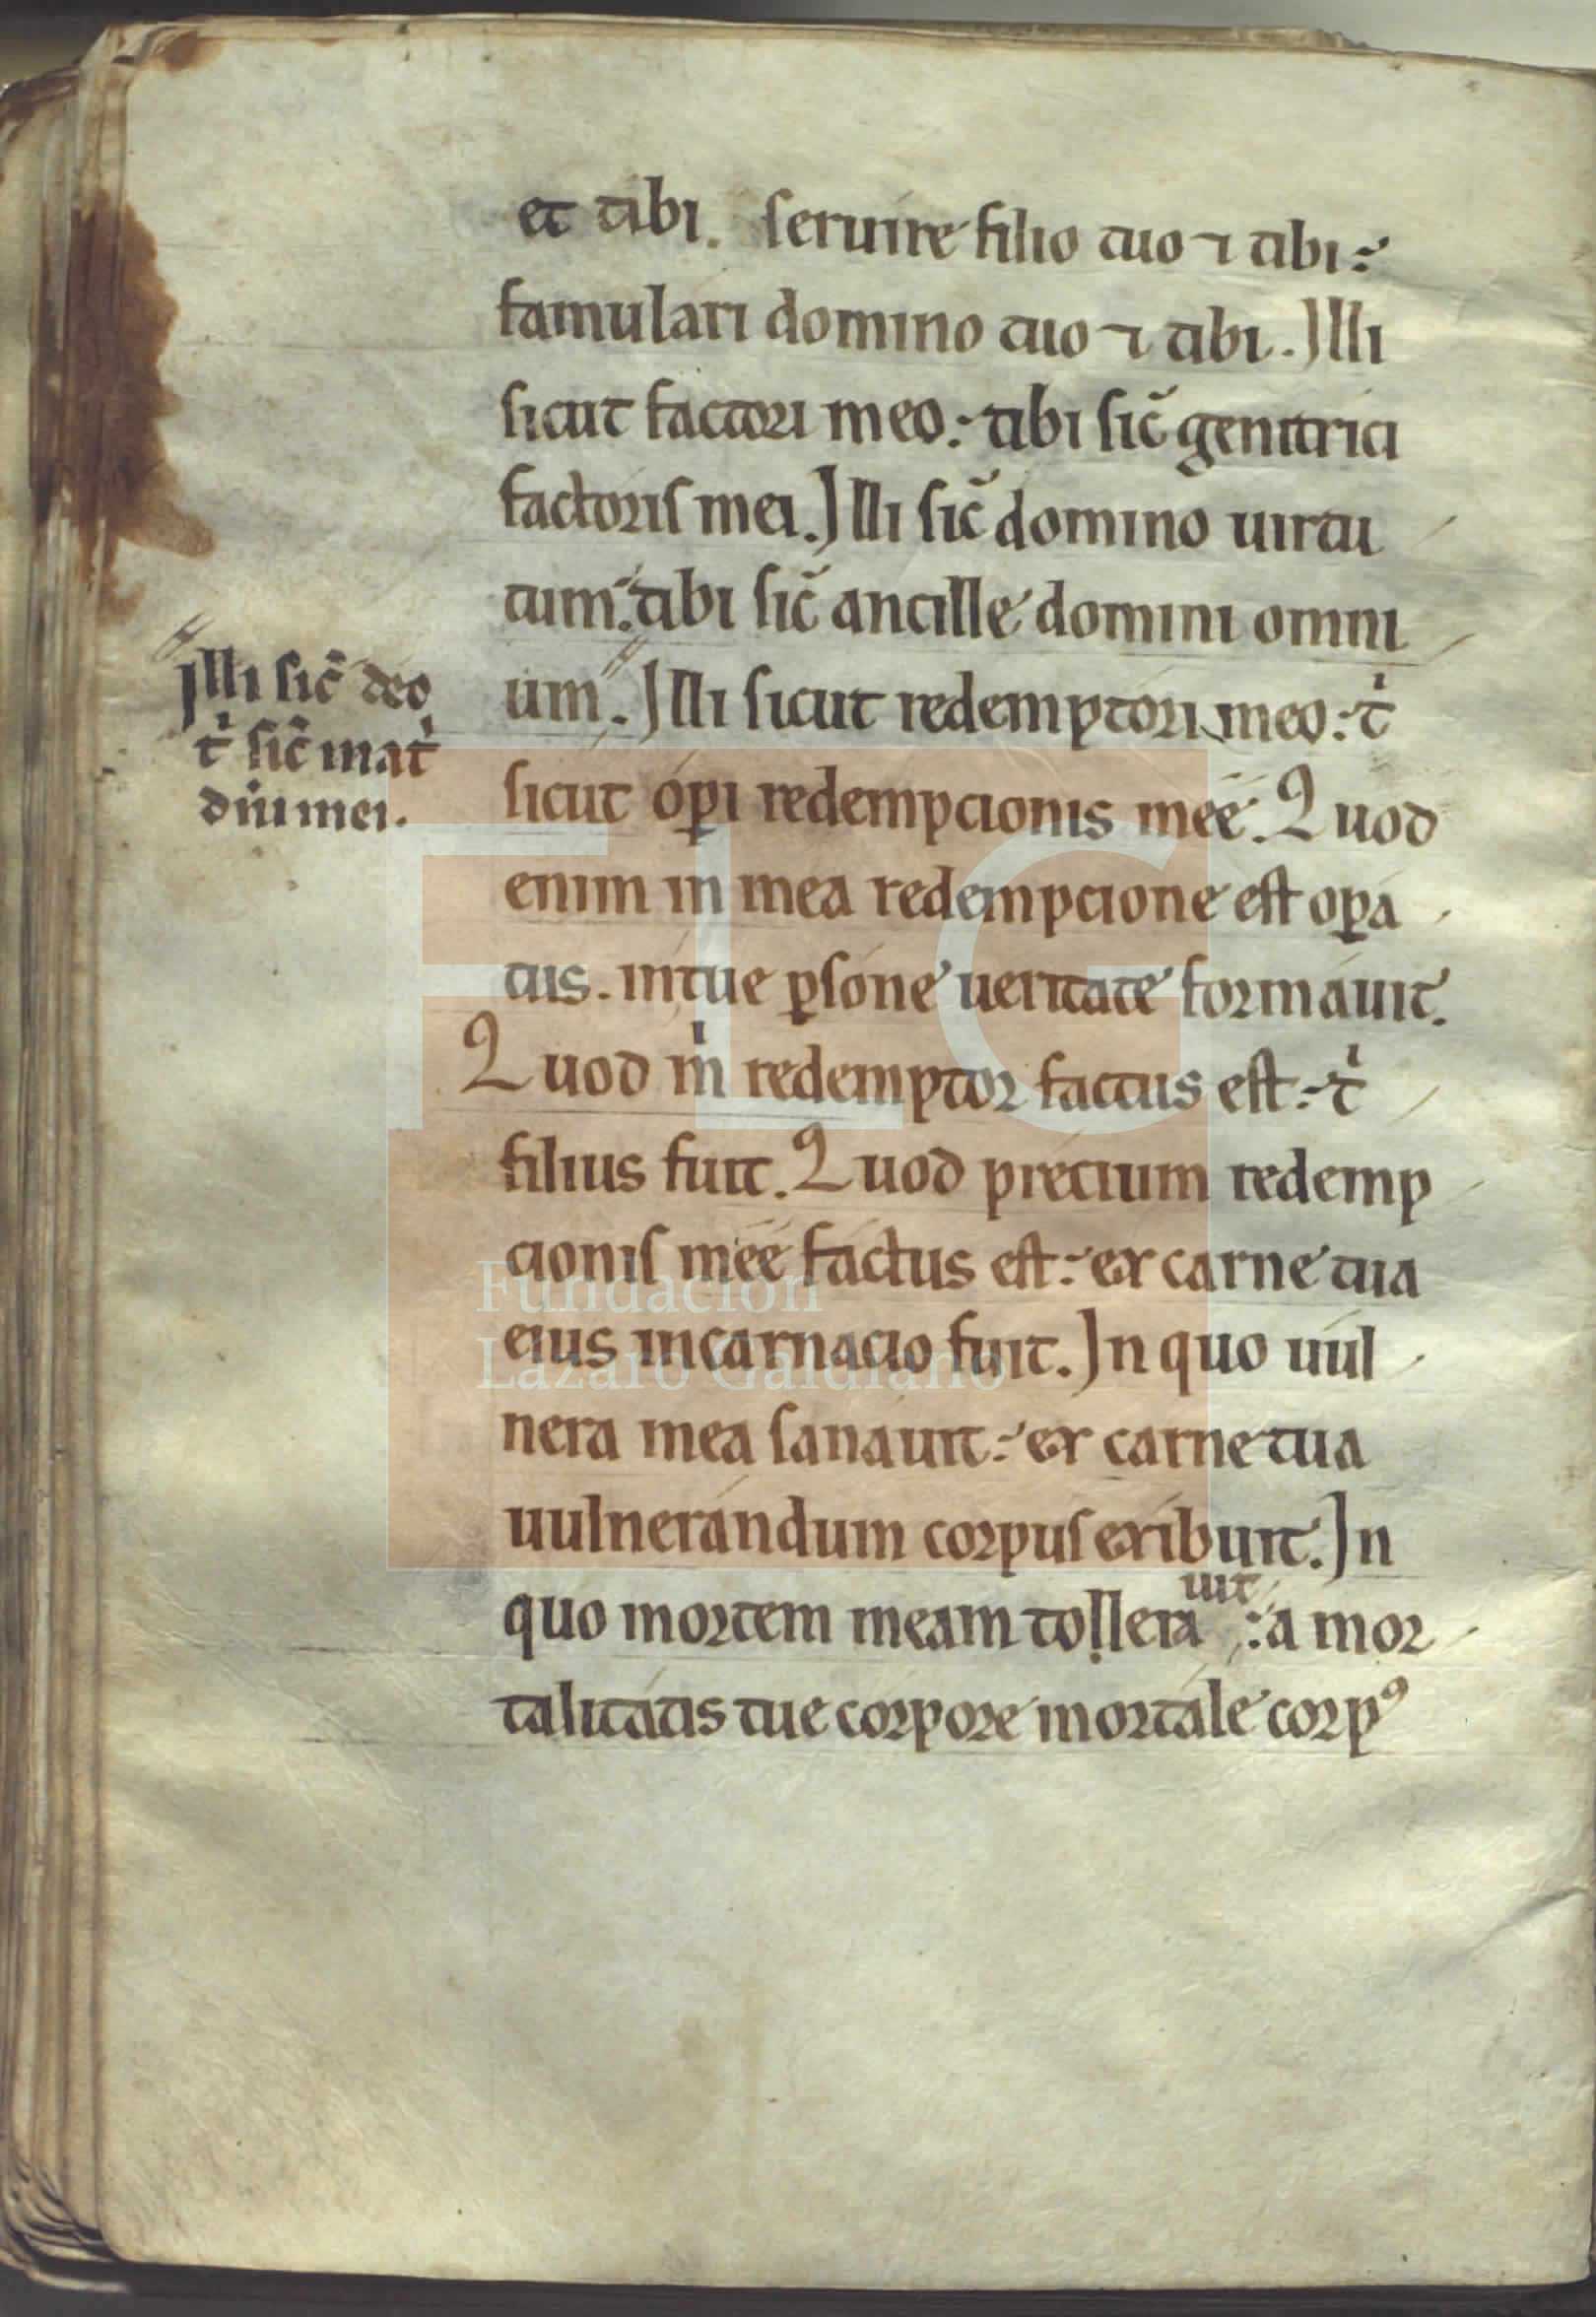 et tibi. seruire filio tuo ⁊ tibi:
famulari domino tuo ⁊ tibi. Illi
sicut factori meo: tibi sic̄ genitrici
factoris mei. Illi sic̄ domino uirtu
tum: tibi sic̄ ancille domini omni
um. Illi sicut redemptori meo: tͥ
sicut op̄i redempcionis mee. Quod
enim in mea redempcione est op̄a
tus. in tue ꝑsone ueritate formauit.
Quod mͥ redemptor factus est: tͥ
filius fuit. Quod precium redemp
cionis mee factus est: ex carne tua
eius incarnacio fuit. In quo uul
nera mea sanauit: ex carne tua
uulnerandum corpus exibuit. In
quo mortem meam tollera uit: a mor
talitatis tue corpore mortale corpꝰ
Illi sic̄ deo
tͥ sic̄ matͥ
dn̄i mei.
FLG
Fundación
Lázaro Galdiano